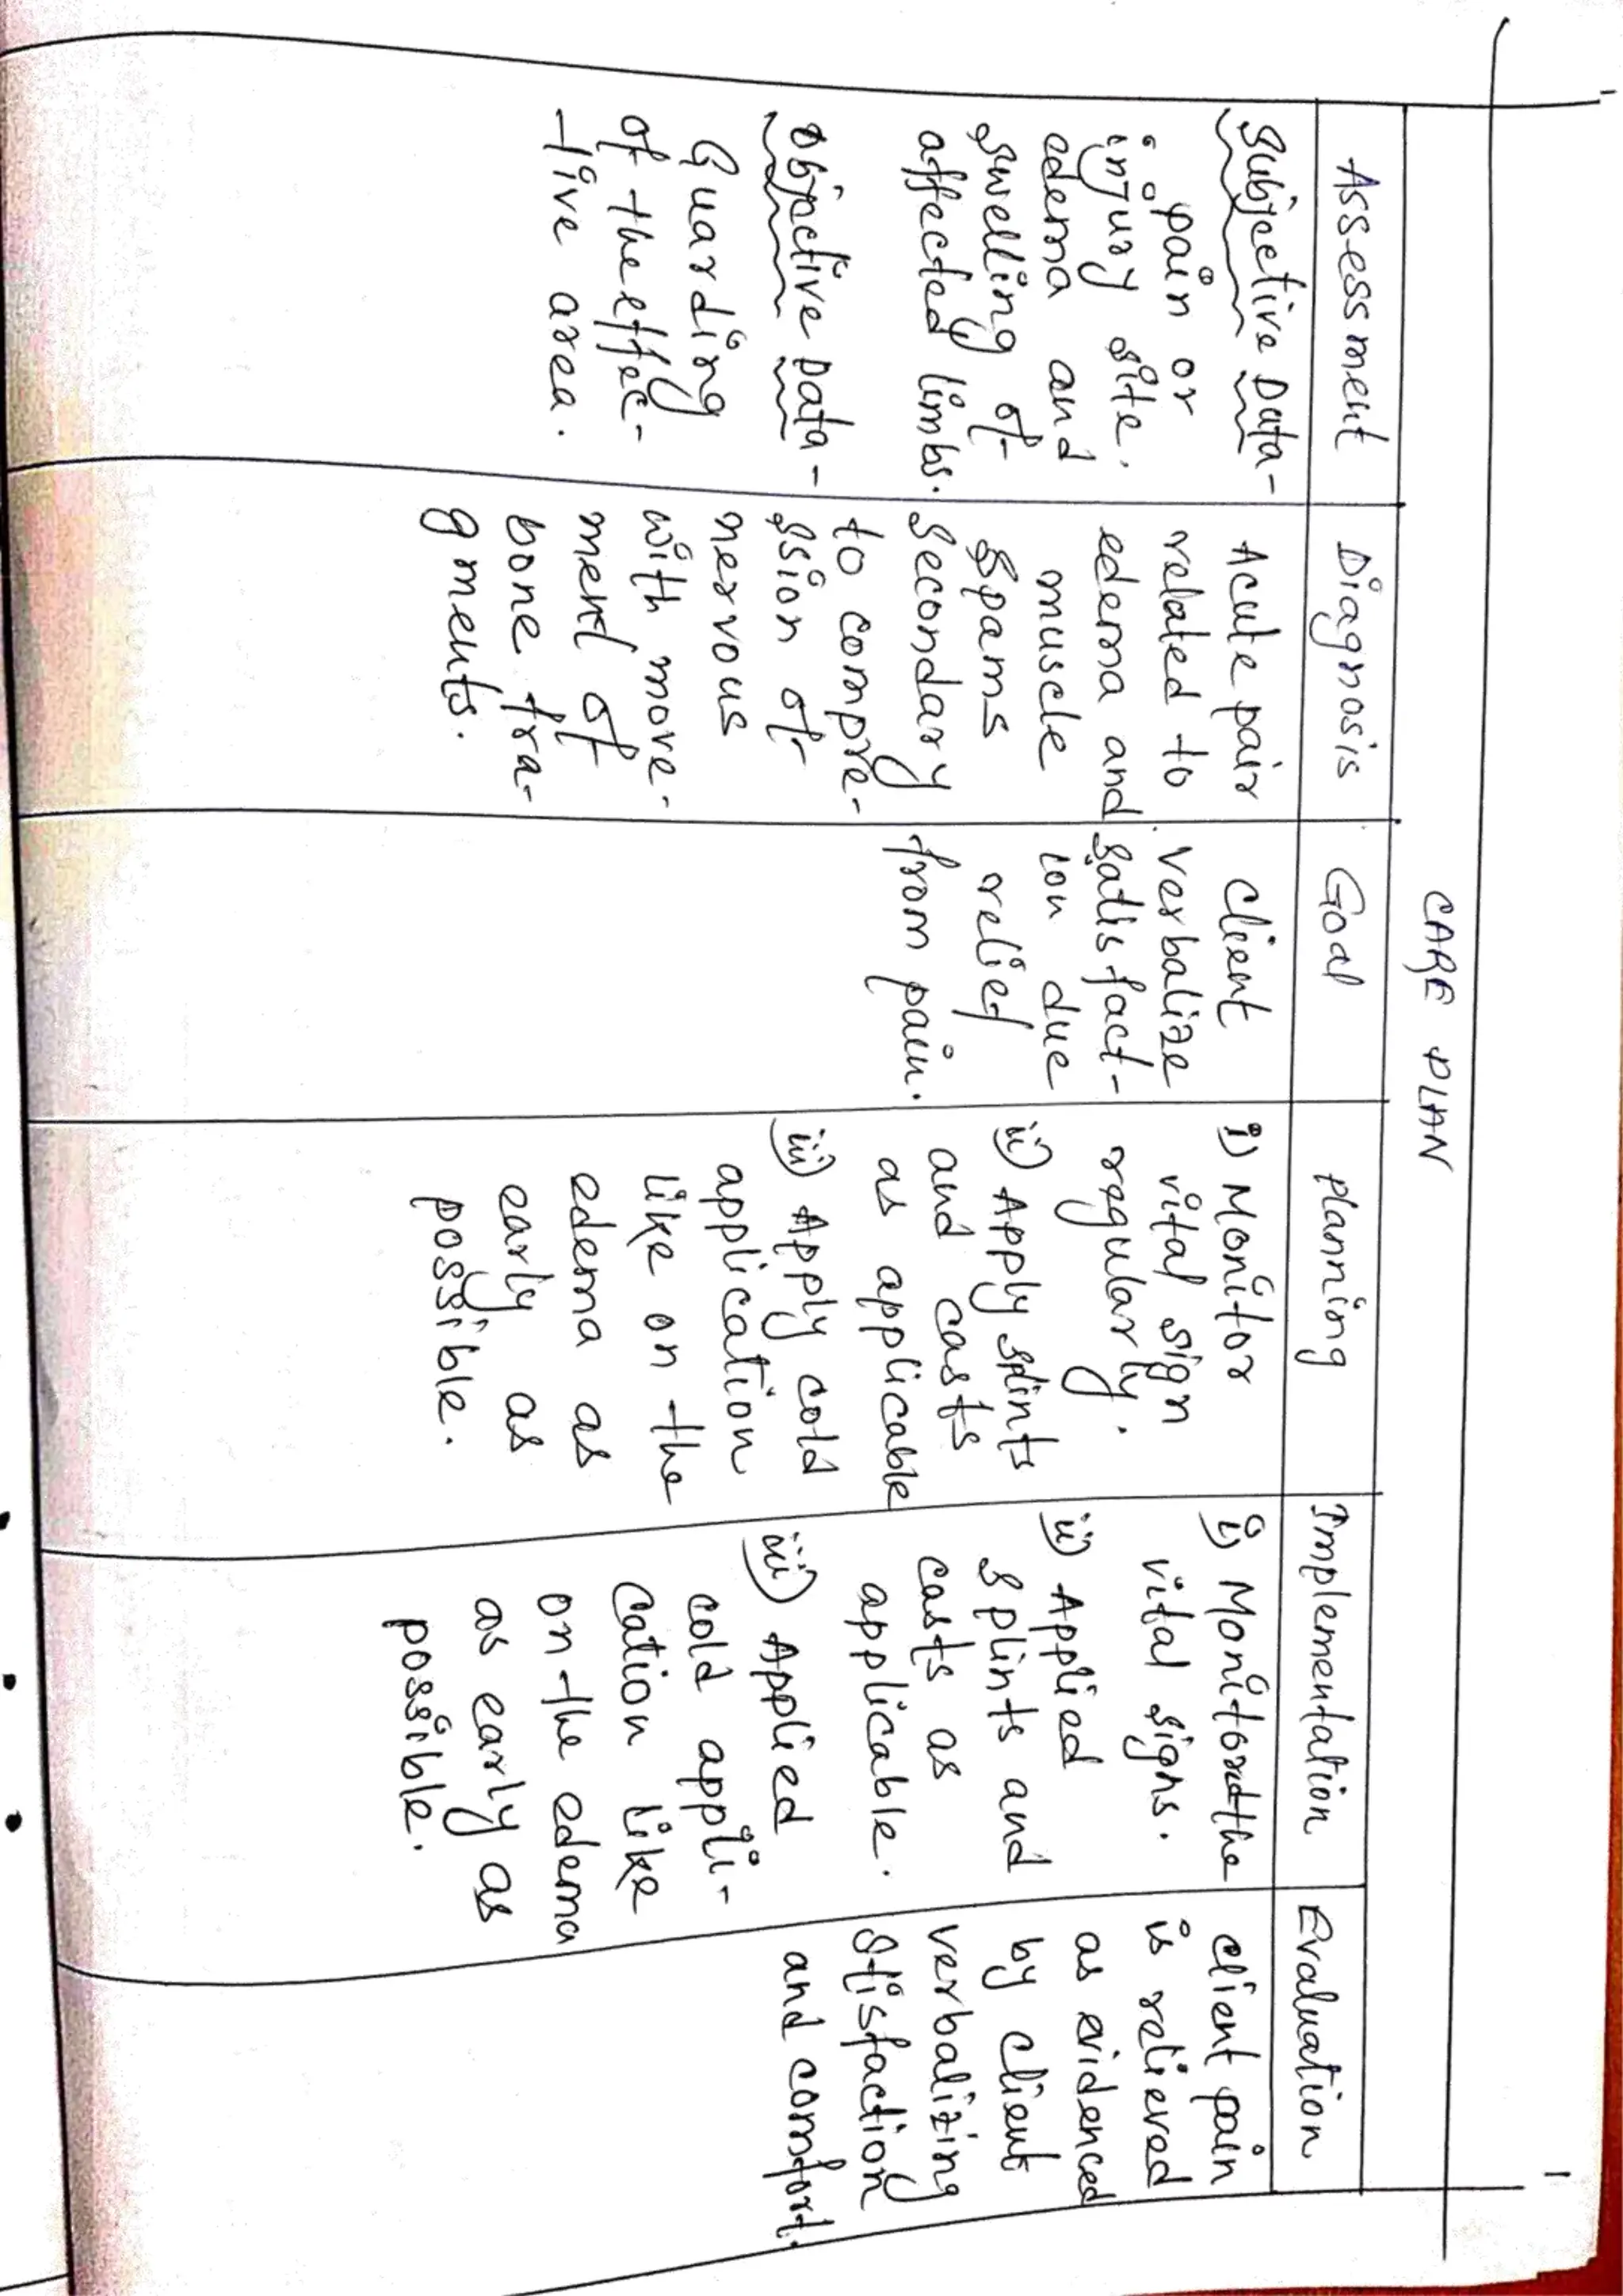 CARE PLAN
Assessment
Diagnosis
Goal
planning
Implementation
Evaluation
Subjective Data-
pain or
injury site.
edema and
swelling of
affected limbs.
objective Data-
Guarding
of the effec-
-tive area.
Acute pain
related to
edema and
muscle
Spams
Secondary
to compre-
ssion of
nervous
with move-
ment of
bone fra-
gments.
client
verbalize
satisfact-
ion due
relief
from pain.
i) Monitor
vital sign
regularly.
ii) Apply splints
and casts
as applicable
iii) Apply cold
application
like on the
edema as
early as
possible.
i) Monitored the
vital signs.
ii) Applied
splints and
casts as
applicable.
iii) Applied
cold appli-
cation like
on the edema
as early as
possible.
client pain
is relieved
as evidenced
by client
verbalizing
stisfaction
and comfort.